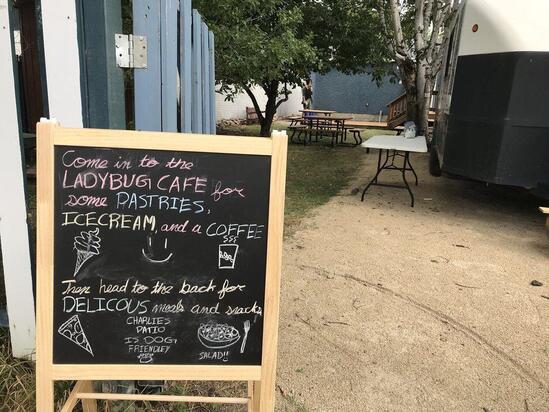 Come in to the
LADYBUG CAFE for
some PASTRIES,
ICECREAM, and a COFFEE
Then head to the back for
DELICOUS meals and snacks
CHARLIES
PATIO
IS DOG
FRIENDLEY
SALAD!!